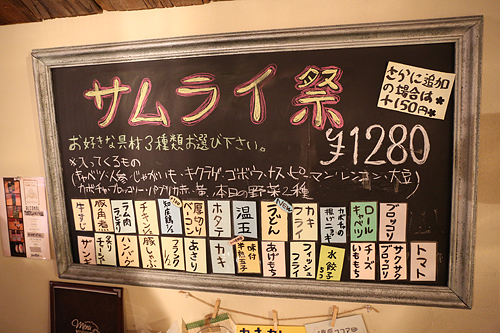 サムライ祭
お好きな具材3種類お選び下さい。
¥1280
さらに追加
の場合は
+150円
※入ってくるもの
(キャベツ・人参・じゃがいも・キクラゲ・ゴボウ・ナス・ピーマン・レンコン・大豆)
カボチャ・ブロッコリー・パプリカ赤、黄、本日の野菜2種
牛すじ
豚角煮
ラム肉
チキン
厚切りベーコン
ホタテ
カキ
温玉
うどん
カキフライ
ロールキャベツ
ブロッコリー
ザンギ
ハンバーグ
豚しゃぶ
フランク
あさり
納豆
味付
半熟玉子
あげもち
フィッシュフライ
水餃子
チーズ
いももち
サクサク
ブロッコリー
トマト
Menu